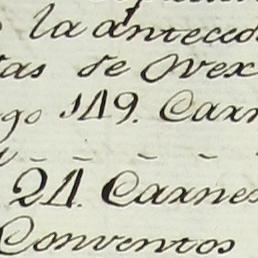 la anteced
tas de Ovex
go 149. Carn
24. Carnes
Conventos